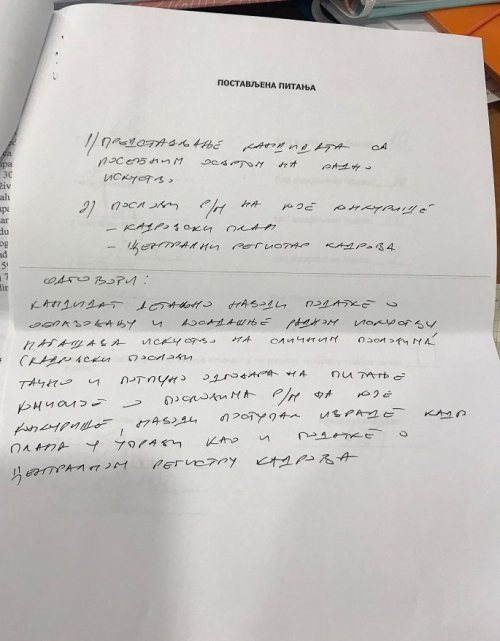 ПОСТАВЉЕНА ПИТАЊА
1) ПРЕДСТАВЉАЊЕ КАНДИДАТА СА
ПОСЕБНИМ ОСВРТОМ НА РАДНО
ИСКУСТВО
2) ПОСЛОВИ Р/М НА КОЈЕ КОНКУРИШЕ
– КАДРОВСКИ ПЛАН
– ЦЕНТРАЛНИ РЕГИСТАР КАДРОВА
ОДГОВОРИ:
КАНДИДАТ ДЕТАЉНО НАВОДИ ПОДАТКЕ О
ОБРАЗОВАЊУ И ДОСАДАШЊЕ РАДНОМ ИСКУСТВУ,
НАГЛАШАВА ИСКУСТВО НА СЛИЧНИМ ПОСЛОВИМА,
(КАДРОВСКИ ПОСЛОВИ
ТАЧНО И ПОТПУНО ОДГОВАРА НА ПИТАЊЕ
О ПОСЛОВИМА Р/М НА КОЈЕ
КОНКУРИШЕ, НАВОДИ ПОСТУПАК ИЗРАДЕ КАДР
ПЛАНА У УПРАВИ КАО И ПОДАТКЕ О
ЦЕНТРАЛНОМ РЕГИСТРУ КАДРОВА